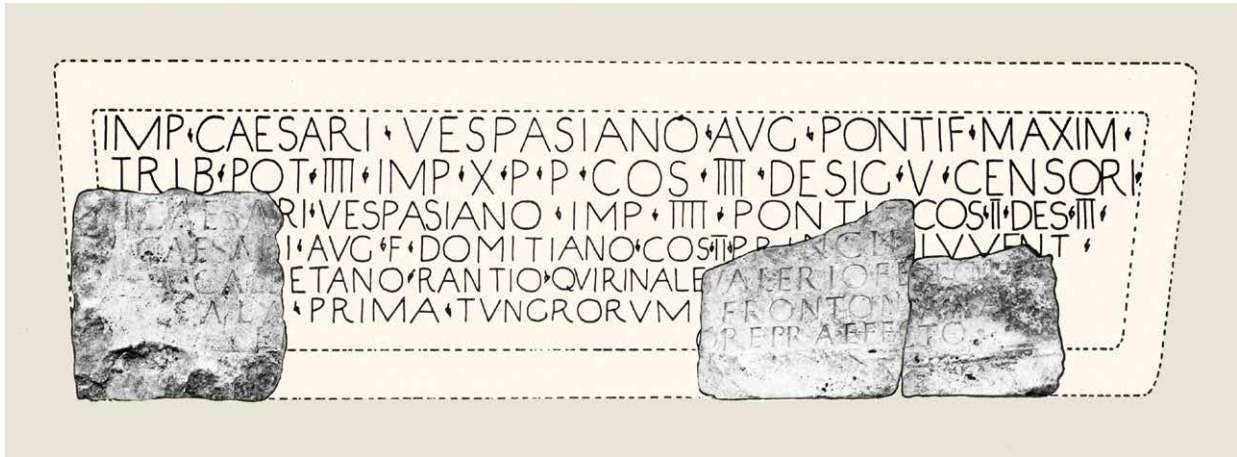 IMP·CAESARI·VESPASIANO·AVG·PONTIF·MAXIM·
TRIB·POT·IIII·IMP·X·P·P·COS·IIII·DESIG·V·CENSORI·
CAESARI·VESPASIANO·IMP·IIII·PONTIF·COS·II·DES·III·
CAESARI·AVG·F·DOMITIANO·COS·II·PRINCIPI IVVENT·
CALPETANO·RANTIO·QVIRINALE VALERIO FESTO
ALA·PRIMA·TVNGRORVM FRONTON
OREPRAEFECTO